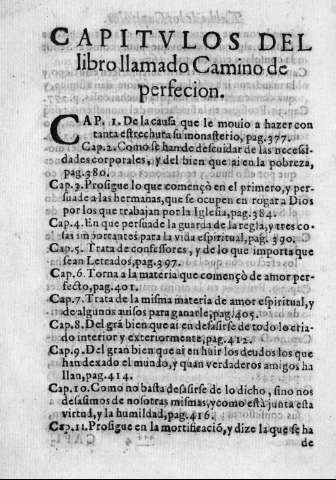 CAPITVLOS DEL
libro llamado Camino de
perfecion.
CAP. 1. De la causa que le mouio a hazer con
tanta estrechura su monasterio, pag.377.
Cap.2. Como se han de descuidar de las necesi-
dades corporales, y del bien que ai en la pobreza,
pag.380.
Cap.3. Prosigue lo que començò en el primero, y per-
suade a las hermanas, que se ocupen en rogar a Dios
por los que trabajan por la Iglesia, pag.384.
Cap.4. En que persuade la guarda de la regla, y tres co-
sas importantes para la vida espiritual, pag. 390.
Cap.5. Trata de confessores, y de lo que importa que
sean Letrados, pag.397.
Cap.6. Torna a la materia que començò de amor per-
fecto, pag.401.
Cap.7. Trata de la misma materia de amor espiritual, y
de algunos auisos para ganarle, pag.405.
Cap.8. Del grã bien que ai en desasirse de todo lo cria-
do interior y exteriormente, pag.412.
Cap.9. Del gran bien que ai en huir los deudos los que
han dexado el mundo, y quan verdaderos amigos ha
llan, pag.414.
Cap.10. Como no basta desasirse de lo dicho, sino nos
desasimos de nosotras mismas, y como està junta esta
virtud, y la humildad, pag.416.
Cap.11. Prosigue en la mortificació, y dize la que se ha
de